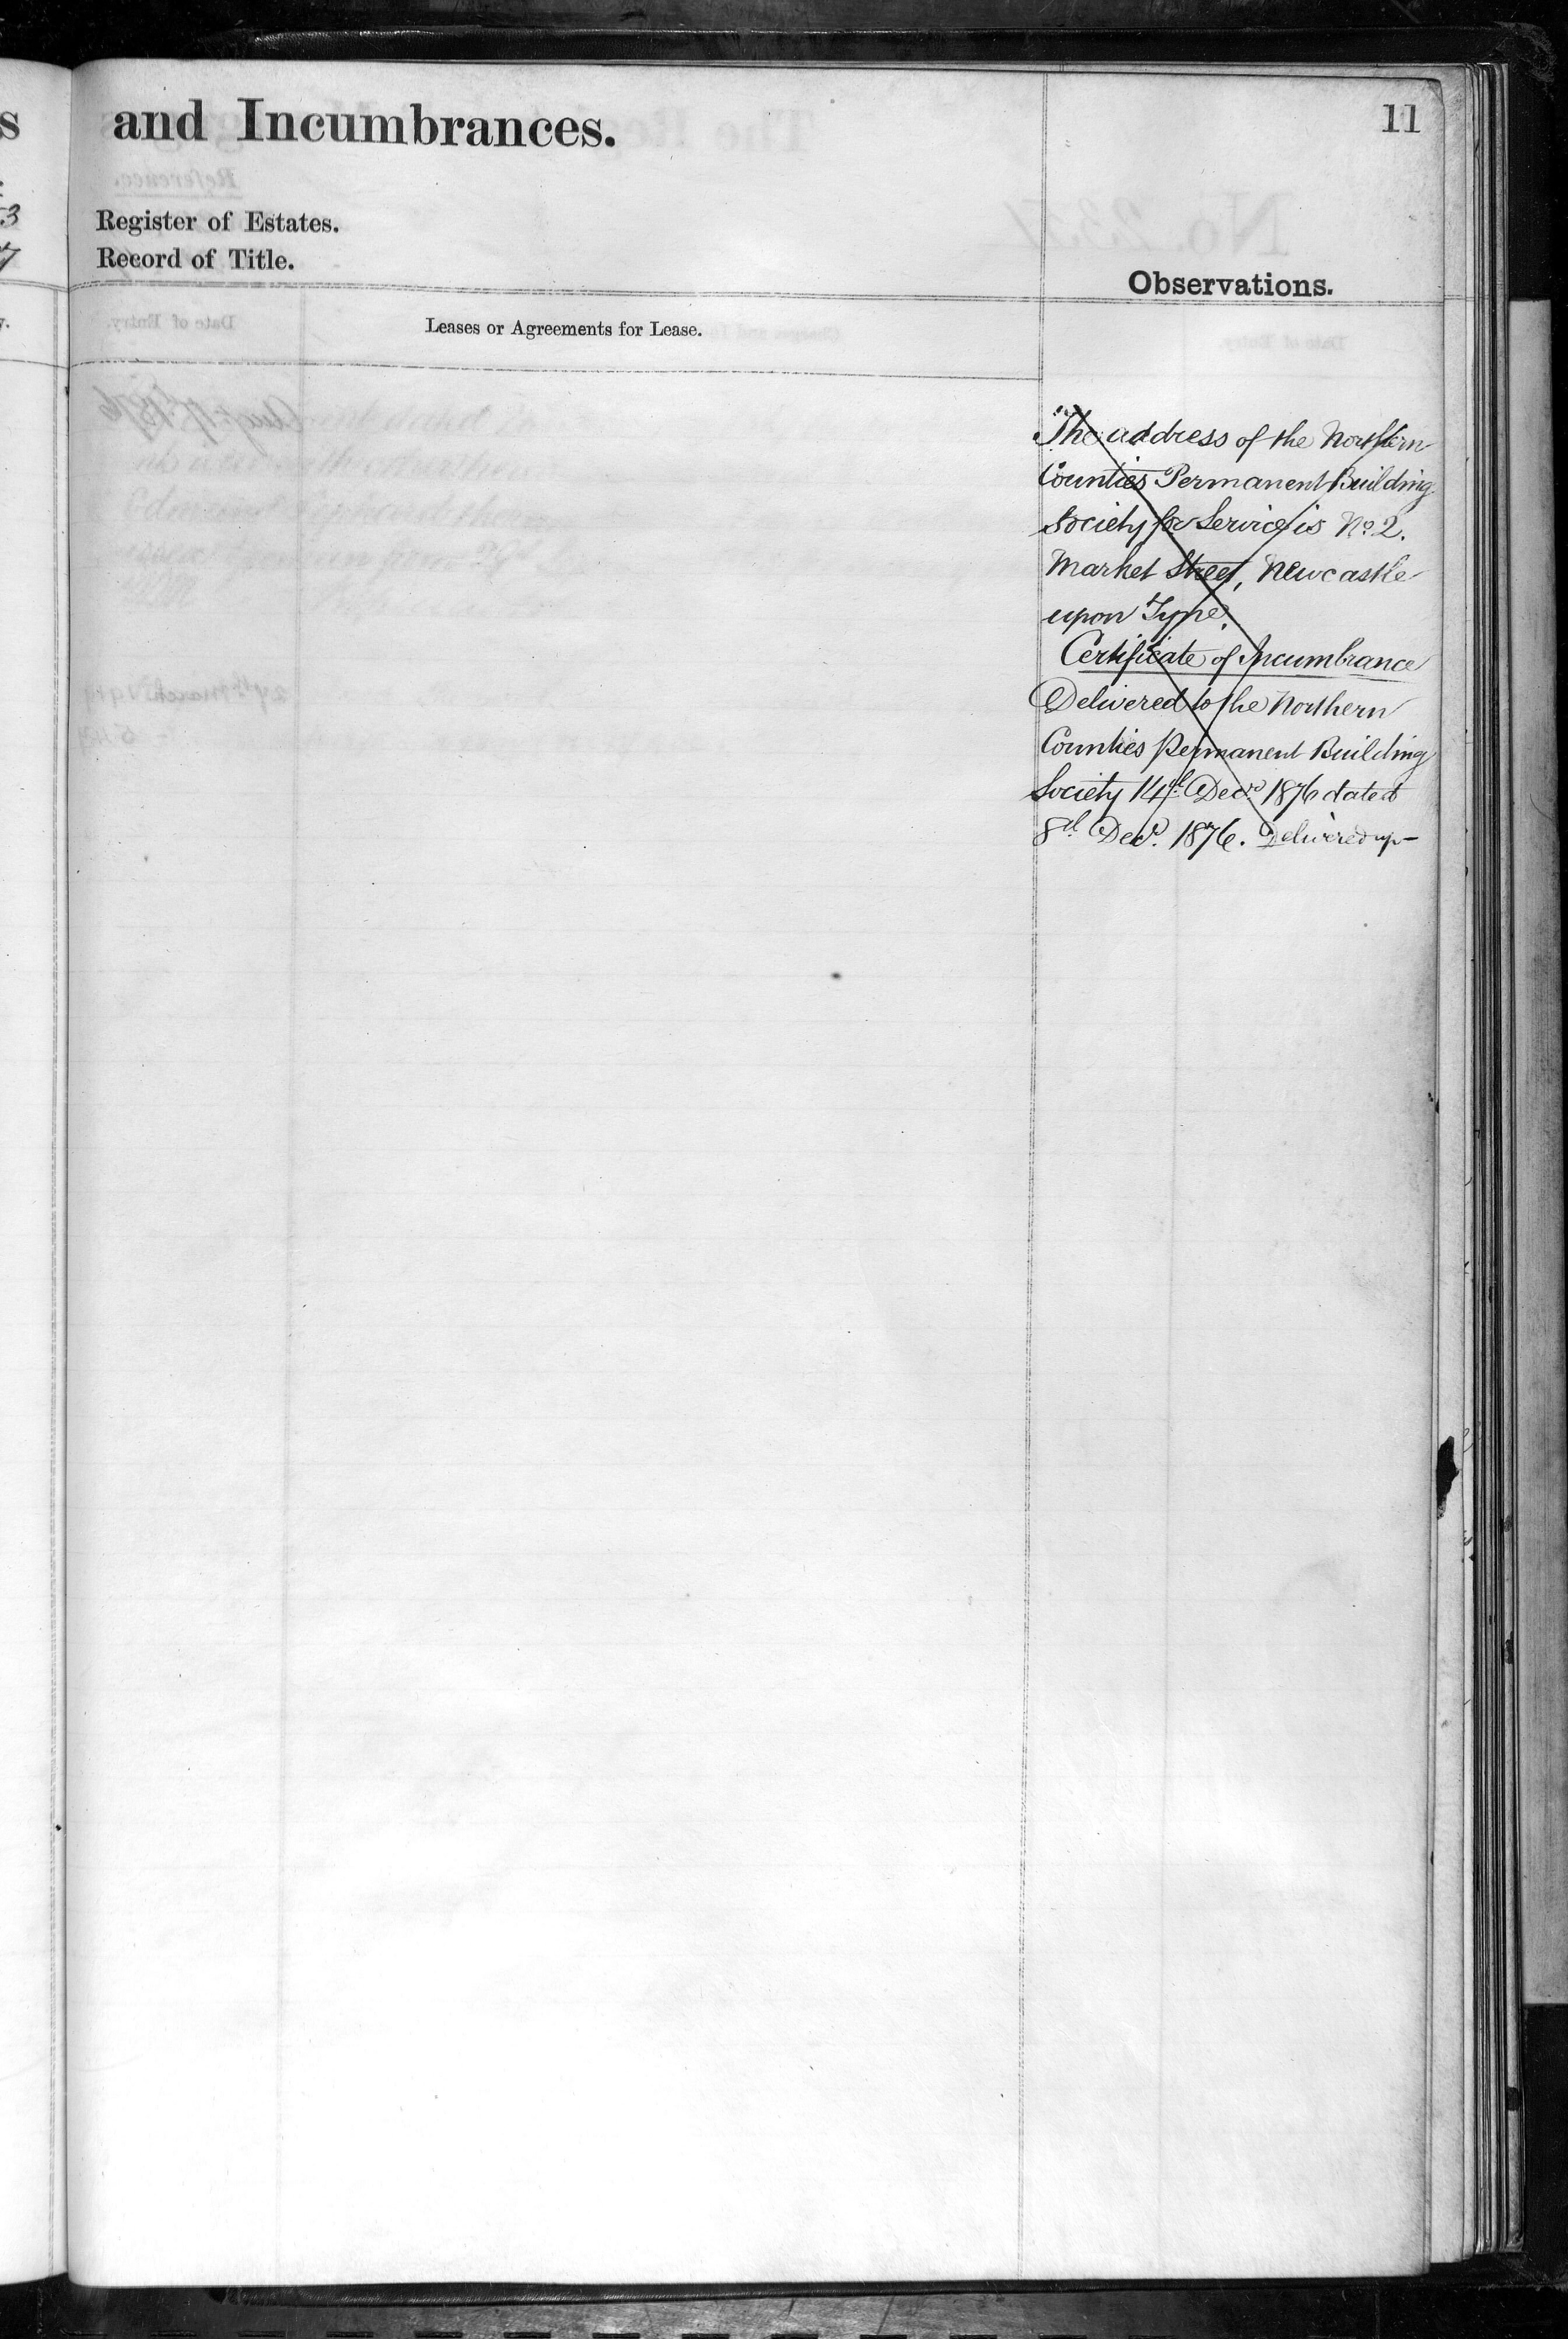 and Incumbrances.
11
Register of Estates.
Record of Title.
Observations.
Leases or Agreements for Lease.
The address of the Northern
Counties Permanent Building
Society for Service is No. 2.
Market Street, Newcastle
upon Tyne.
Certificate of Incumbrance
Delivered to the Northern
Counties Permanent Building
Society 14th Decr. 1876 dated
8th Decr. 1876. Delivered up